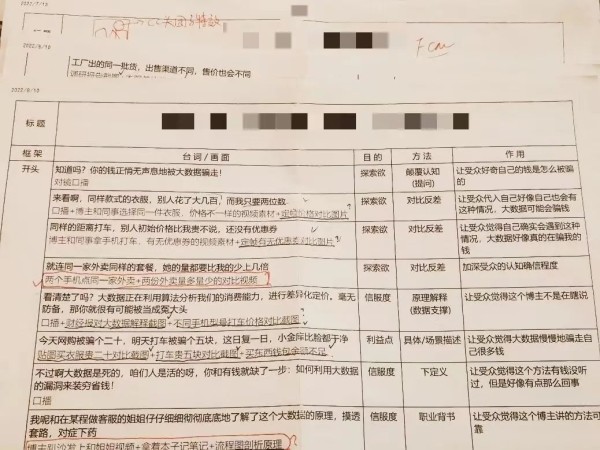 2022/7/15
2022/8/10
Fcm
工厂出的同一批货，出售渠道不同，售价也会不同
2022/8/10
标题
框架 台词/画面 目的 方法 作用
开头
知道吗？你的钱正悄无声息地被大数据骗走！
对镜口播
探索欲
颠覆认知
(提问)
让受众好奇自己的钱是怎么被骗
的
来看啊，同样款式的衣服，别人花了大几百，而我只要两位数
口播+博主和同事选择同一件衣服，价格不一样的视频素材+定帧价格对比图片
探索欲
对比反差
让受众代入自己好像自己也会有
这种情况，大数据可能会骗钱
同样的距离打车，别人初始价格比我贵不说，还没有优惠券
博主和同事拿手机打车，有无优惠券的视频素材+定帧有无优惠券对比图片
探索欲
对比反差
让受众觉得自己确实会遇到这种
情况，大数据好像真的在骗我的
钱
就连同一家外卖同样的套餐，她的量都要比我的少上几倍
两个手机点同一家外卖+两份外卖量多量少的对比视频
探索欲
对比反差
加深受众的认知确信程度
看清楚了吗？大数据正在利用算法分析我们的消费能力，进行差异化定价。毫无
防备，那你就很有可能被当成冤大头
口播+财经报对大数据解释截图+不同手机型号打车价格对比截图
信服度
原理解释
(数据支撑)
让受众觉得这个博主不是在瞎说
今天网购被骗个二十，明天打车被骗个五块，这日复一日，小金库比脸都干净
贴图买衣服贵二十对比截图+打车贵五块对比截图+买东西钱包余额不足
利益点
具体/场景描述
让受众觉得大数据慢慢地骗走自
己很多钱
不过啊大数据是死的，咱们人是活的呀，你和有钱就缺了一步：如何利用大数据
的漏洞来装穷省钱！
口播
信服度
下定义
让受众觉得这个方法有钱没听
过，但是好像有点那么回事
我呢和在某程做客服的姐姐仔仔细细彻彻底底地了解了这个大数据的原理，摸透
套路，对症下药
博主趴沙发上和姐姐视频+拿着本子记笔记+流程图剖析原理
信服度
职业背书
让受众觉得这个博主讲的方法可
靠